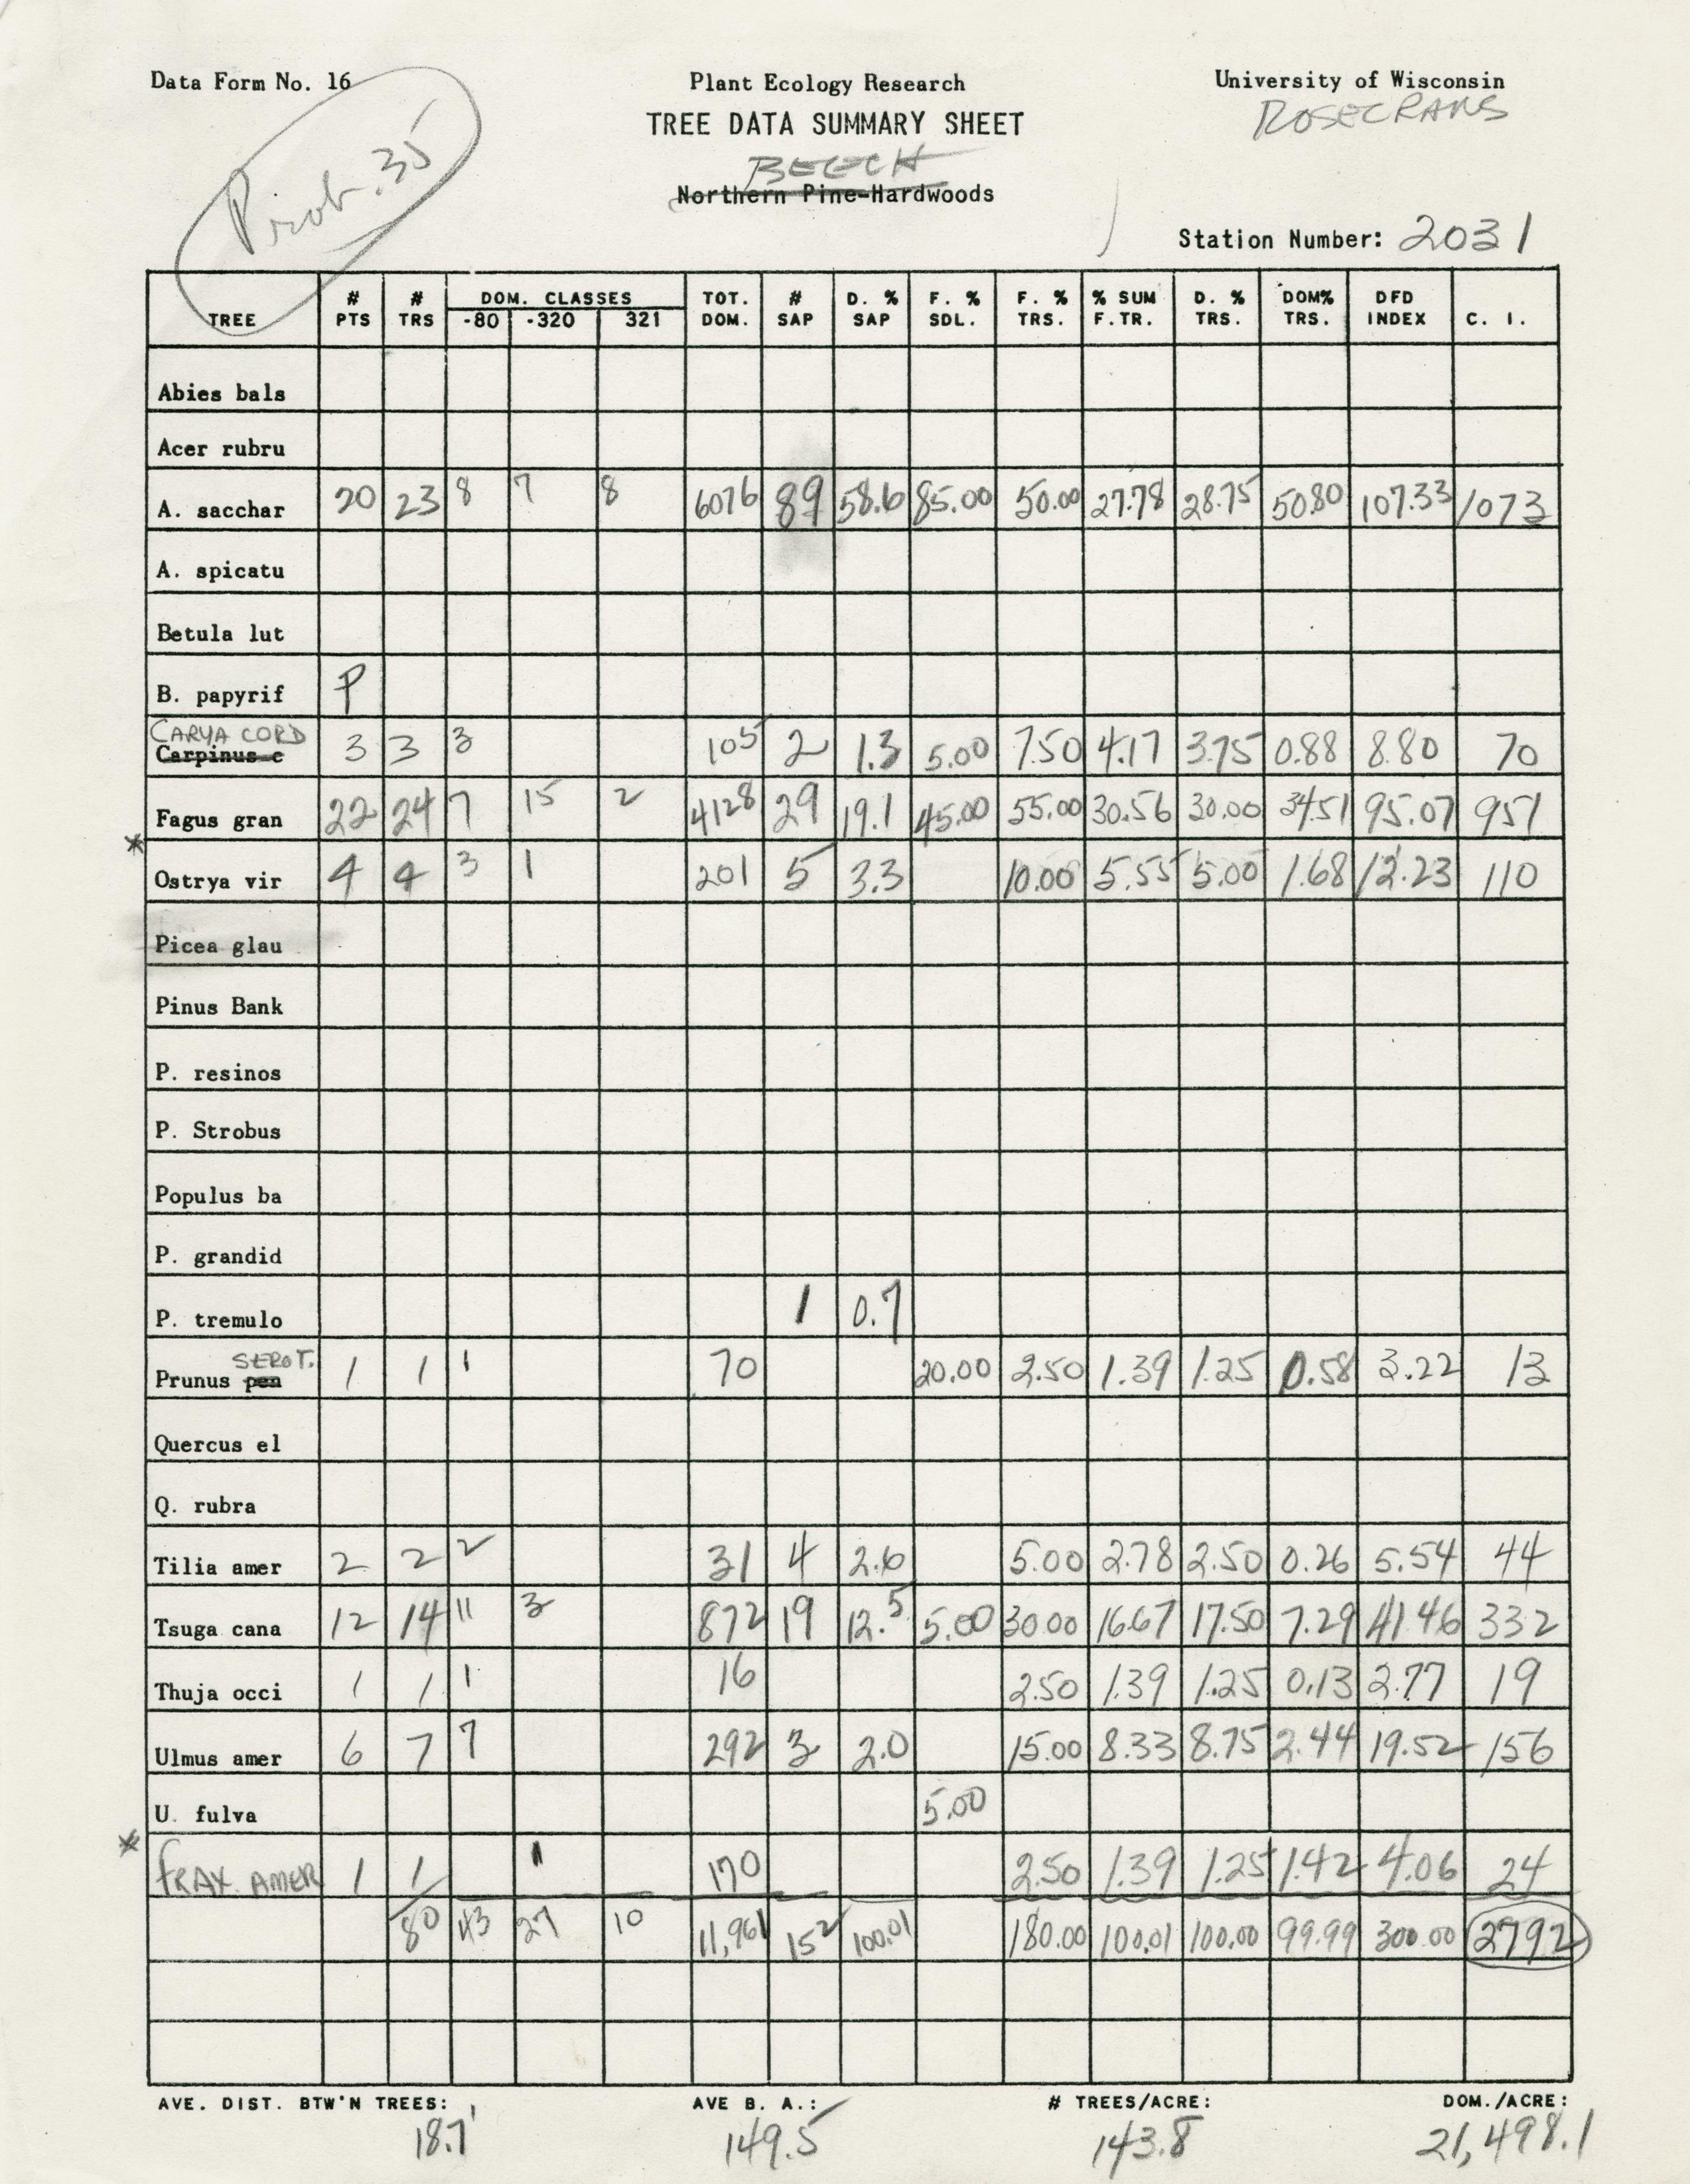 Data Form No. 16
Plant Ecology Research
University of Wisconsin
TREE DATA SUMMARY SHEET
ROSECRANS
Prob. 35
BEECH
Northern Pine-Hardwoods
Station Number: 2031
TREE # PTS # TRS DOM. CLASSES -80 -320 321 TOT. DOM. # SAP D. % SAP F. % SDL. F. % TRS. % SUM F.TR. D. % TRS. DOM% TRS. DFD INDEX C. I.
Abies bals
Acer rubru
A. sacchar 20 23 8 7 8 6076 89 58.6 85.00 50.00 27.78 28.75 50.80 107.33 1073
A. spicatu
Betula lut
B. papyrif P
CARYA CORD
Carpinus c 3 3 3 105 2 1.3 5.00 7.50 4.17 3.75 0.88 8.80 70
Fagus gran 22 24 7 15 2 4128 29 19.1 45.00 55.00 30.56 30.00 34.51 95.07 951
* Ostrya vir 4 4 3 1 201 5 3.3 10.00 5.55 5.00 1.68 12.23 110
Picea glau
Pinus Bank
P. resinos
P. Strobus
Populus ba
P. grandid
P. tremulo 1 0.7
SEROT.
Prunus pen 1 1 1 70 20.00 2.50 1.39 1.25 0.58 3.22 13
Quercus el
Q. rubra
Tilia amer 2 2 2 31 4 2.6 5.00 2.78 2.50 0.26 5.54 44
Tsuga cana 12 14 11 3 872 19 12.5 5.00 30.00 16.67 17.50 7.29 41.46 332
Thuja occi 1 1 1 16 2.50 1.39 1.25 0.13 2.77 19
Ulmus amer 6 7 7 292 3 2.0 15.00 8.33 8.75 2.44 19.52 156
U. fulva 5.00
* FRAX. AMER 1 1 1 170 2.50 1.39 1.25 1.42 4.06 24
80 43 27 10 11,961 152 100.01 180.00 100.01 100.00 99.99 300.00 2792
AVE. DIST. BTW'N TREES: AVE B. A.: # TREES/ACRE: DOM./ACRE:
18.7' 149.5 143.8 21,498.1